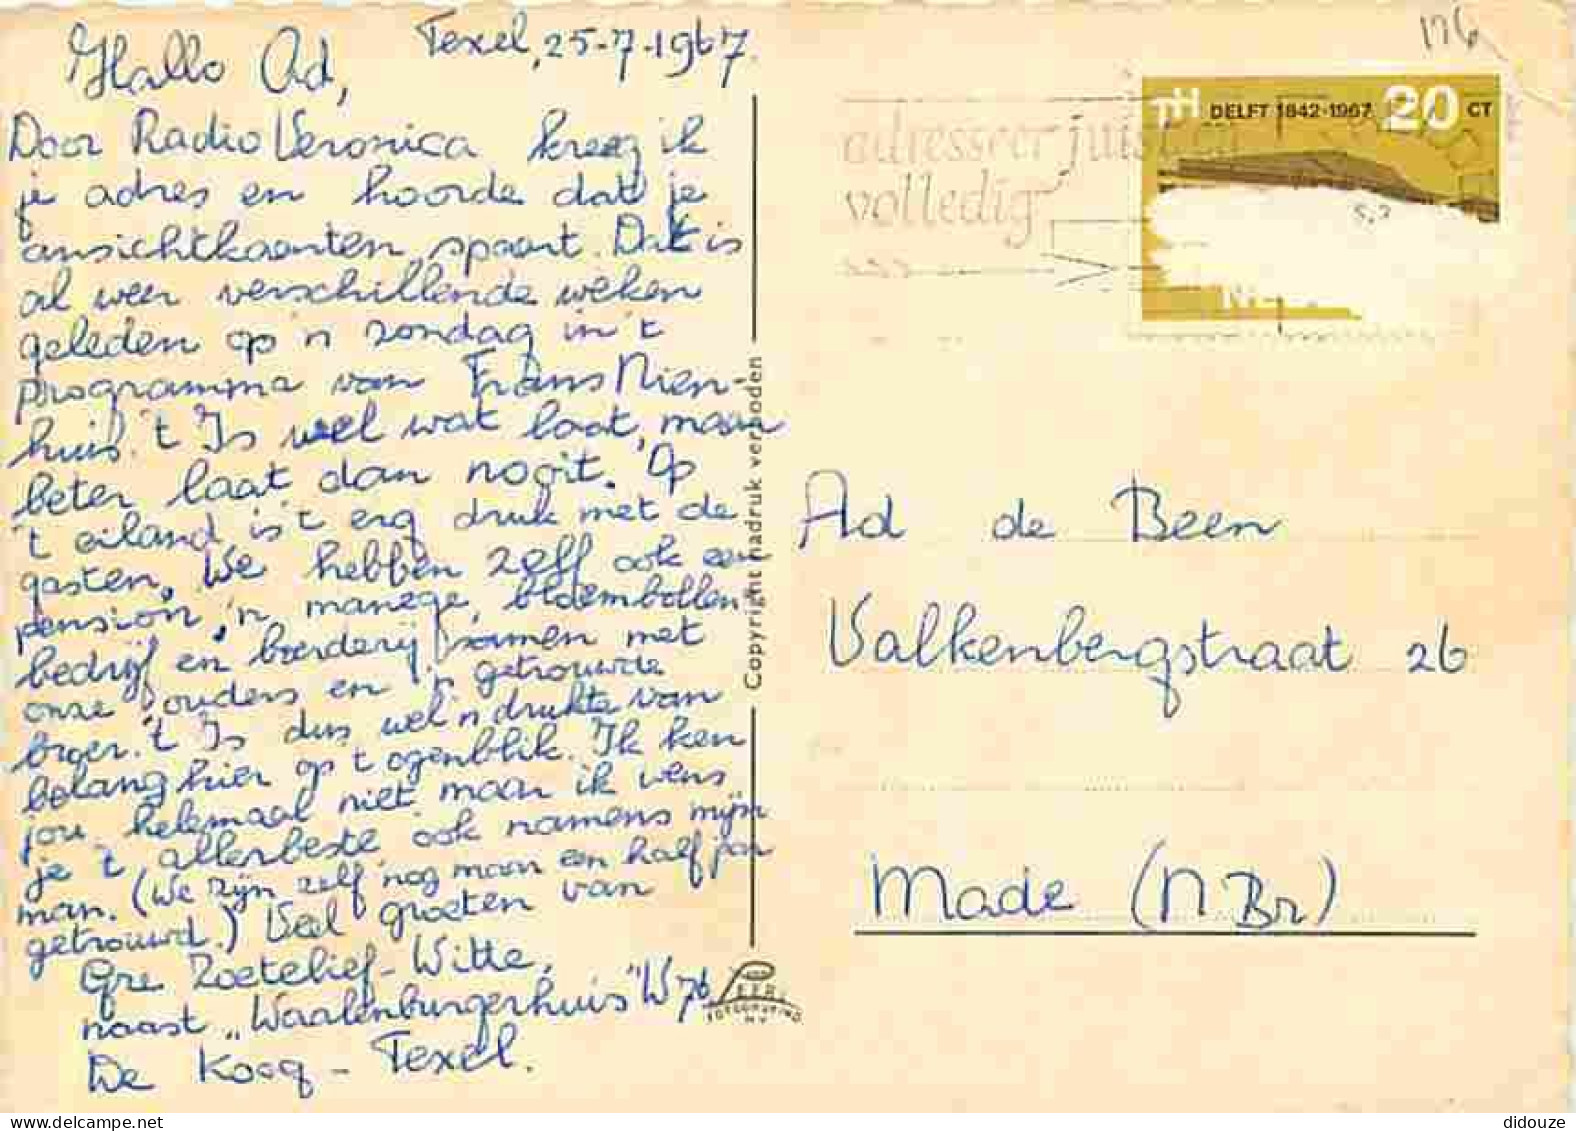 Texel, 25-7-1967.
Hallo Ad,
Door Radio Veronica kreeg ik
je adres en hoorde dat je
ansichtkaarten spaart. Dat is
al weer verschillende weken
geleden op 'n zondag in 't
programma van Frans Nien-
huis. 't Is wel wat laat, maar
beter laat dan nooit. Op
't eiland is 't erg druk met de
gasten. We hebben zelf ook een
pension, 'n manege, bloembollen
bedrijf en boerderij samen met
onze ouders en 'n getrouwde
broer. 't Is dus wel 'n drukte van
belang hier op 't ogenblik. Ik ken
jou helemaal niet maar ik wens
je 't allerbeste ook namens mijn
man. (We zijn zelf nog maar een half jaar
getrouwd.) Veel groeten van
Gre Zoetelief-Witte,
naast „Waalenburgerhuis" W76
De Koog - Texel.
Copyright nadruk verboden
176
TH DELFT 1842-1967 20 CT
adresseer juist en
volledig
Ad de Been
Valkenbergstraat 26
Made (N Br)
didouze